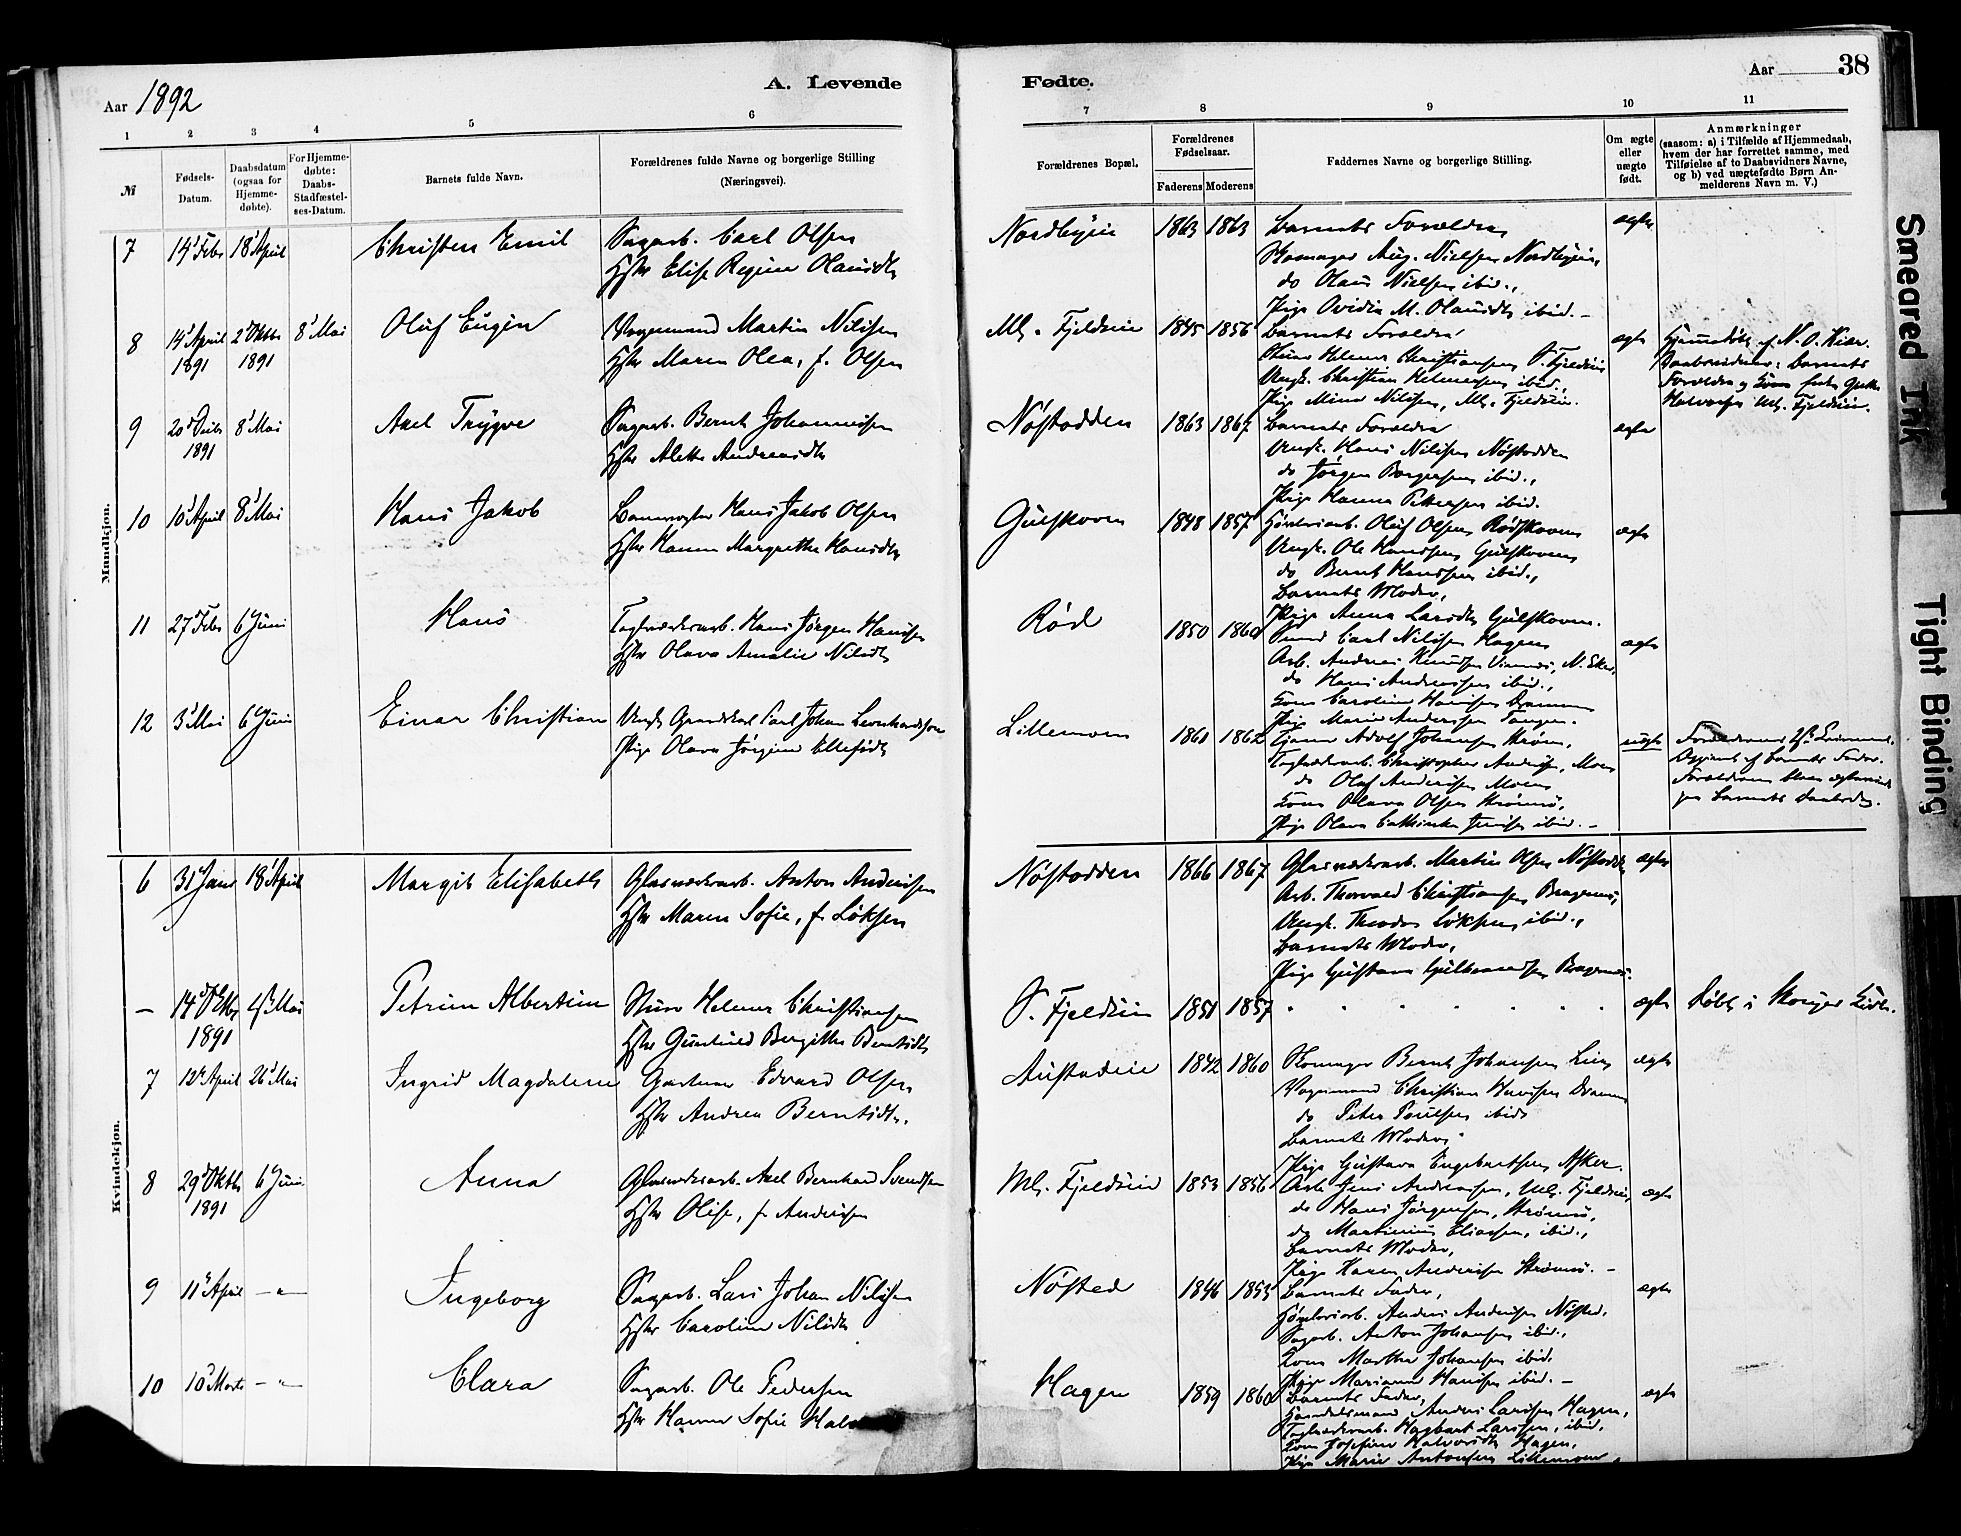 Aar 1892
A. Levende
1 2 3 4 5 6
№
Fødsels-Datum.
Daabsdatum (ogsaa for Hjemme-døbte).
For Hjemme-døbte: Daabs-Stadfæstel-ses-Datum.
Barnets fulde Navn.
Forældrenes fulde Navne og borgerlige Stilling
(Næringsvei).
Mandkjøn.
7 14 Febr 18 April Christen Emil Sagarb. Carl Olsen
Hstr Elise Regine Olausdtr
8 14 April 1891 2 Oktbr 1891 8 Mai Oluf Eugen Vognmand Martin Nilsen
Hstr Maren Olea, f. Olsen
9 20 Decbr 1891 8 Mai Axel Trygve Sagarb. Bernt Johannesen
Hstr Alette Andreasdtr
10 10 April 8 Mai Hans Jakob Hans Jakob Olsen
Hstr Hanna Margrethe Hansdtr
11 27 Febr 6 Juni Hans Teglværksarb. Hans Jørgen Hansen
Hstr Olava Amalie Nilsdtr
12 3 Mai 6 Juni Einar Christian Ungk. Carl Johan Leonhardsson
Pige Olava Jørgine Ellefsdtr
Kvindekjøn.
6 31 Janr 18 April Margit Elisabeth Glasværksarb. Anton Andersen
Hstr Maren Sofie, f. Løksen
– 14 Oktbr 1891 Mai Petrine Albertine Helmer Christiansen
Hstr Gunhild Bergitte Berntsdtr
7 12 April 26 Mai Ingrid Magdalene Gartner Edvard Olsen
Hstr Andrea Berntsdtr.
8 29 Oktbr 1891 6 Juni Anna Glasværksarb. Axel Bernhard Svendsen
Hstr Olise, f. Andersen
9 11 April – " – Ingeborg Sagarb. Lars Johan Nilsen
Hstr Caroline Nilsdtr
10 10 Marts – " – Clara Sagarb. Ole Pedersen
Hstr Hanna Sofie
Fødte.
Aar 38
7 8 9 10 11
Forældrenes Bopæl.
Forældrenes Fødselsaar.
Faderens Moderens
Faddernes Navne og borgerlige Stilling.
Om ægte eller uægte født.
Anmærkninger
(saasom: a) i Tilfælde af Hjemmedaab, hvem der har forrettet samme, med Tilføielse af to Daabsvidners Navne, og b) ved uægtefødte Børn Anmelderens Navn m. V.)
Nordbyeie 1863 1863 Barnets Forældre ægte
Aug. Nielsen Nordbyeie,
do Olaus Nielsen ibid.,
Pige Ovidia M. Olausdtr ibid. –
Ml. Fjeldeie 1845 1856 Barnets Forældre ægte Hjemmedøbt af N. O. Kiær.
Helmer Christiansen S. Fjeldeie Daabsvidner: Barnets
Ungk. Christian Helmersen ibid., Forældre og
Pige Mina Nilsen, Ml. Fjeldeie. Halvorsen Ml. Fjeldeie.
Nøstodden 1863 1867 Barnets Forældre ægte
Ungk. Hans Nilsen Nøstodden
do Jørgen Borgersen ibid.,
Pige Hanna Petersen ibid.
Gulskoven 1848 1857 Høvleriarb. Oluf Olsen Rødskoven ægte
Ungk. Ole Hansen Gulskoven
do Bernt Hansen ibid.,
Barnets Moder,
Pige Anna Larsdtr Gulskoven.
Rød 1850 1860 Carl Nilsen Hagen ægte
Arb. Andreas Knudsen N. Eker,
do Hans Andersen ibid.,
Kone Caroline Hansen Drammen
Pige Marie Andersen Tangen.
Lillemoen 1861 1862 Adolf Johansen Strøm, uægte
Teglværksarb. Christopher Andersen, Moen
do Oluf Andersen Moen
Kone Olava Olsen Strømsø,
Pige Olava Cathinka Jensen ibid. –
Opgivet af Barnets Fader.
Nøstodden 1866 1867 Glasværksarb. Martin Olsen Nøstodden ægte
Arb. Thorvald Christiansen Bragernæs,
Ungk. Theodor Løksen ibid.,
Barnets Moder,
Pige Gustava Gulbrandsen Bragernæs.
S. Fjeldeie 1851 1857 " " " " " " " ægte Døbt i
Austadeie 1842 1860 Bernt Johansen Lier ægte
Vognmand Christian Hansen Drammen
do Peter Paulsen ibid.
Barnets Moder,
Pige Gustava Engebretsen Asker.
Ml. Fjeldeie 1853 1856 Arb. Jens Andreassen, Ml. Fjeldeie, ægte
do Hans Jørgensen, Strømsø,
do Martinius Eliasen, ibid.,
Barnets Moder,
Pige Karen Andersen Strømsø. –
Nøsted 1846 1853 Barnets Fader, ægte
Høvleriarb. Anders Andersen Nøsted,
Sagarb. Anton Johansen ibid.,
Kone Marthe Johansen ibid.
Pige Mariane Hansen ibid. –
Hagen 1859 1860 Barnets Fader, ægte
Anders Larsen Hagen,
Teglværksarb. Hagbart Larsen, ibid.
Kone Josefine Halvorsdtr Hagen,
Pige Marie Antonsen Lillemoen
Smeared Ink
Tight Binding